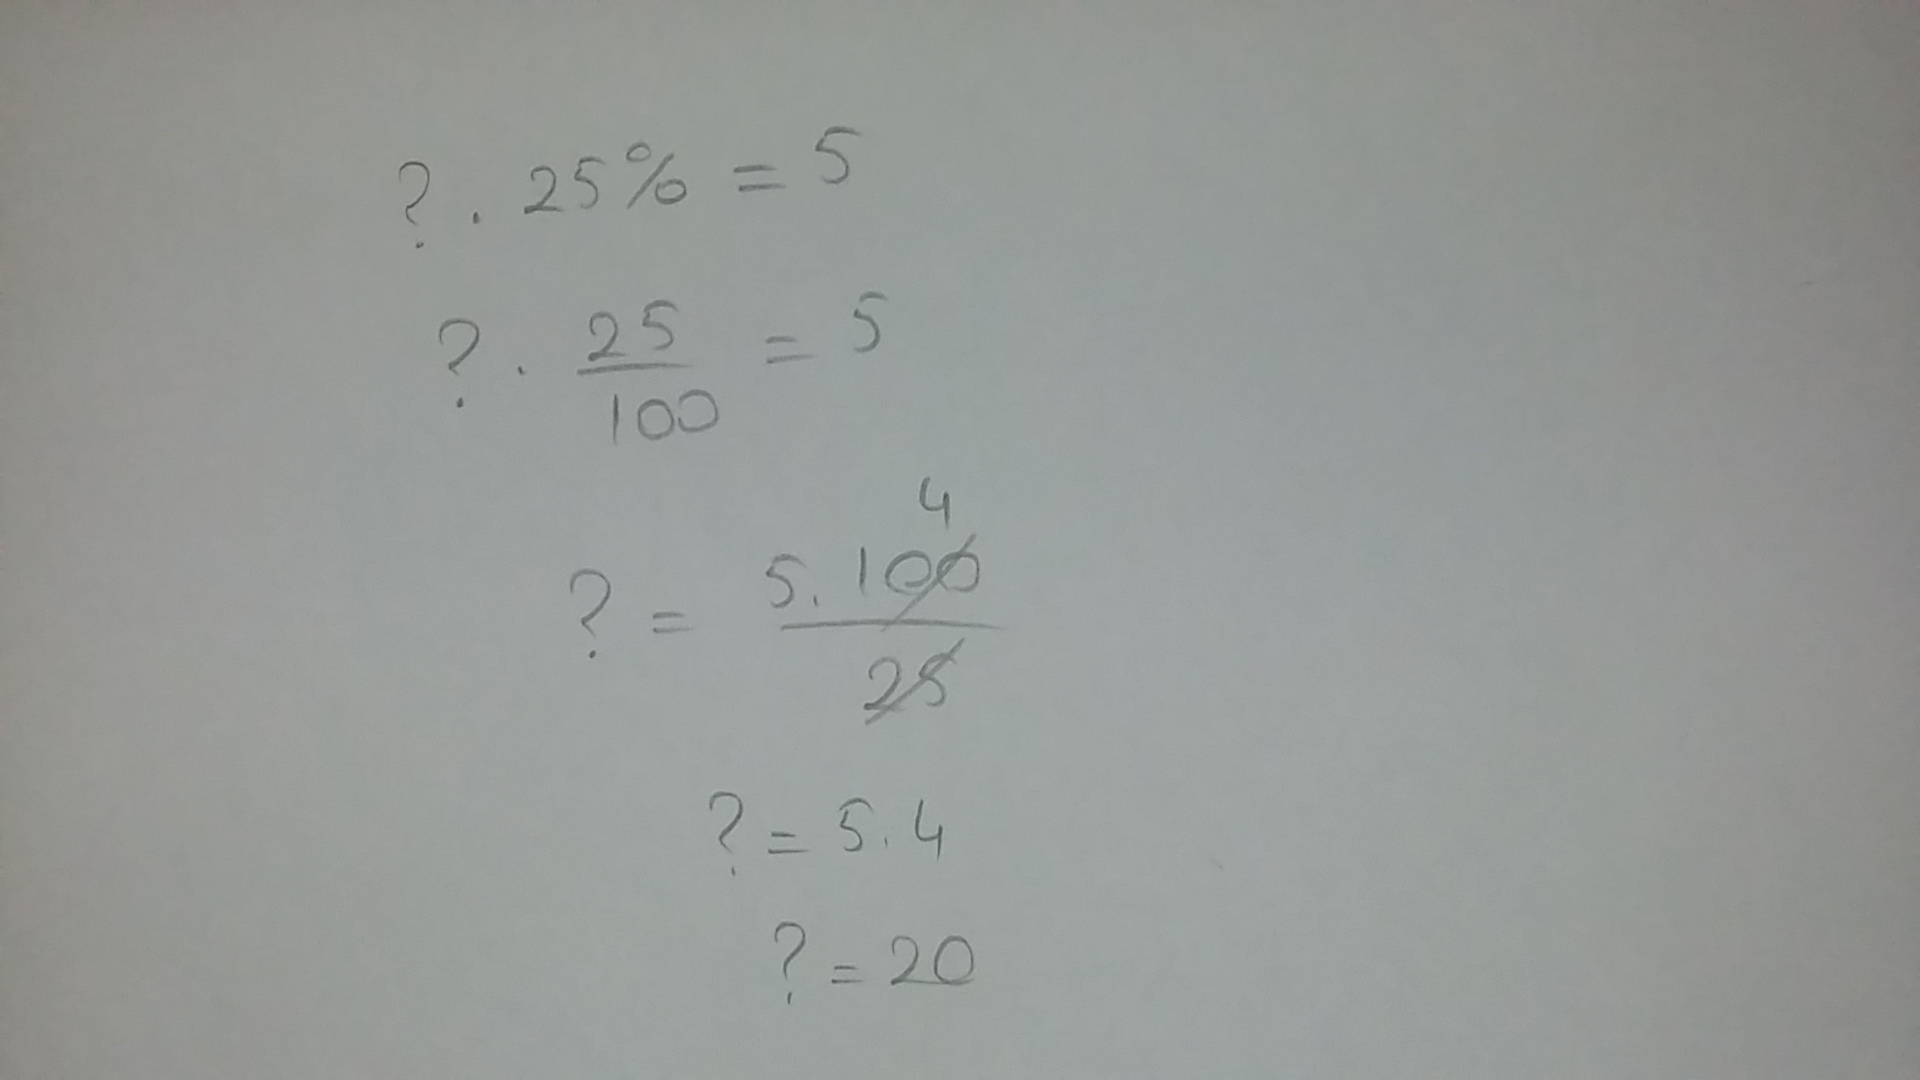 ? . 25% = 5
? . 25/100 = 5
4
? = 5.100/25
? = 5.4
? = 20